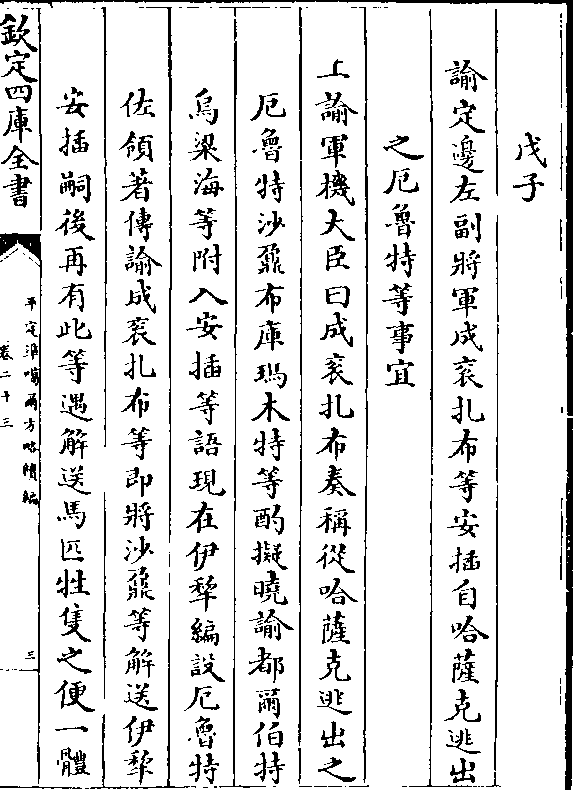 戊子
諭定邊左副將軍成衮扎布等安插自哈薩克逃出
之厄魯特等事宜
上諭軍機大臣曰成衮扎布奏稱從哈薩克逃出之
厄魯特沙鼐布庫瑪木特等酌擬曉諭都爾伯特
烏梁海等附入安插等語現在伊犂編設厄魯特
佐領著傳諭成衮扎布等即將沙鼐等解送伊犂
安插嗣後再有此等遇解送馬匹牲隻之便一體
欽定四庫全書
平定準噶爾方略續編
卷二十三
三